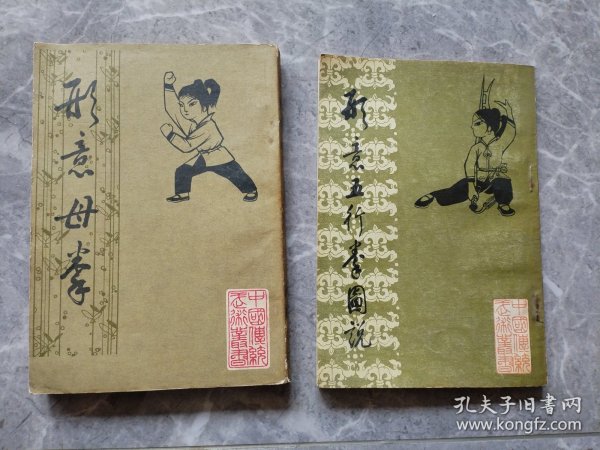 形意母拳
中國傳統
武術叢書
形意五行拳圖説
中國傳統
武術叢書
孔夫子旧书网
www.kongfz.com